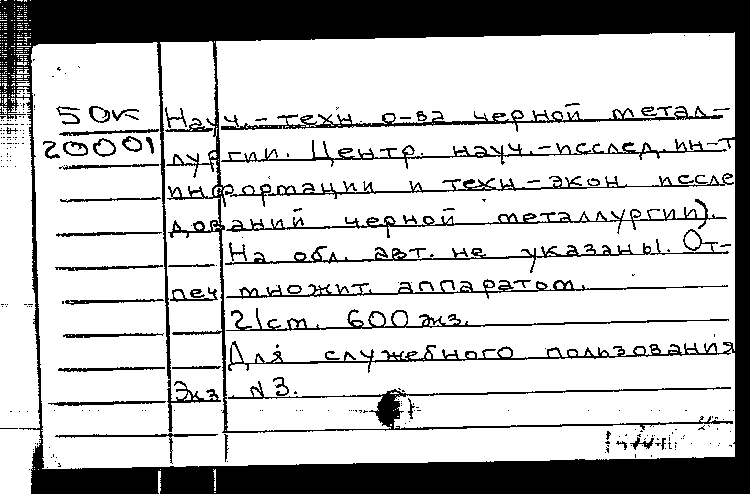 50к Науч.-техн. о-ва черной метал-
20001 лургии. Центр. науч.-исслед. ин-т
информации и техн-экон. иссле
дований черной металлургии).
На обл. авт. не указаны. От-
печ множит. аппаратом.
21 ст. 600 экз.
Для служебного пользования
Экз. N 3.